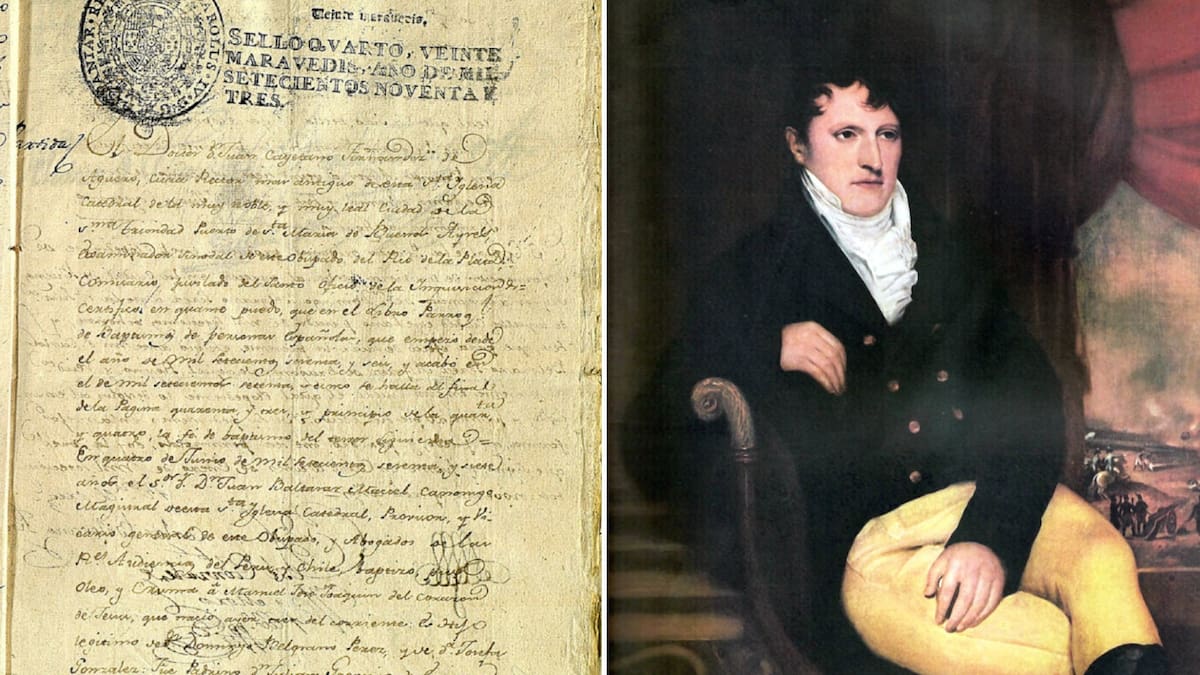 Veinte maravedis.
SELLO QVARTO, VEINTE
MARAVEDIS, AÑO DE MIL
SETECIENTOS NOVENTA Y
TRES.
CAROLUS IV D. G.
Partida
El Doctor Dn Juan Cayetano Fernandez de
Aguero, Cura Rector mas antiguo de esta Sta Yglesia
Catedral de la muy noble, y muy leal Ciudad de la
Sma Trinidad Puerto de Sta Maria de Buenos Ayres,
Examinador Sinodal de este Obispado del Rio de la Plata,
Comisario, juvilado del Santo Oficio de la Inquisicion &c.
Certifico en quanto puedo, que en el Libro Parroq
de Baptismos de personas Españolas, que empezó desde
el año de mil setecientos sesenta, y acabó en
el de mil setecientos setenta, y cinco se halla al final
de la Pagina quarenta y tres, y principio de la quar
y quatro, la fé de baptismo del tenor siguiente
En quatro de Junio de mil setecientos setenta, y siete
años el Sor Dr Juan Baltasar Maciel Canonigo
Magistral de esta Sta Yglesia Catedral, Provisor, y Vi
cario general de este Obispado, y Abogado de las
Rs Audiencias del Perú, y Chile, baptizó, puso
Oleo, y Crisma á Manuel José Joaquin del Corazon
de Jesus, que nació ayer tres del corriente: es hijo
legitimo de Dn Domingo Belgrano Perez, y de Da Josefa
Gonzalez: Fue Padrino Dn Julian Gregorio de